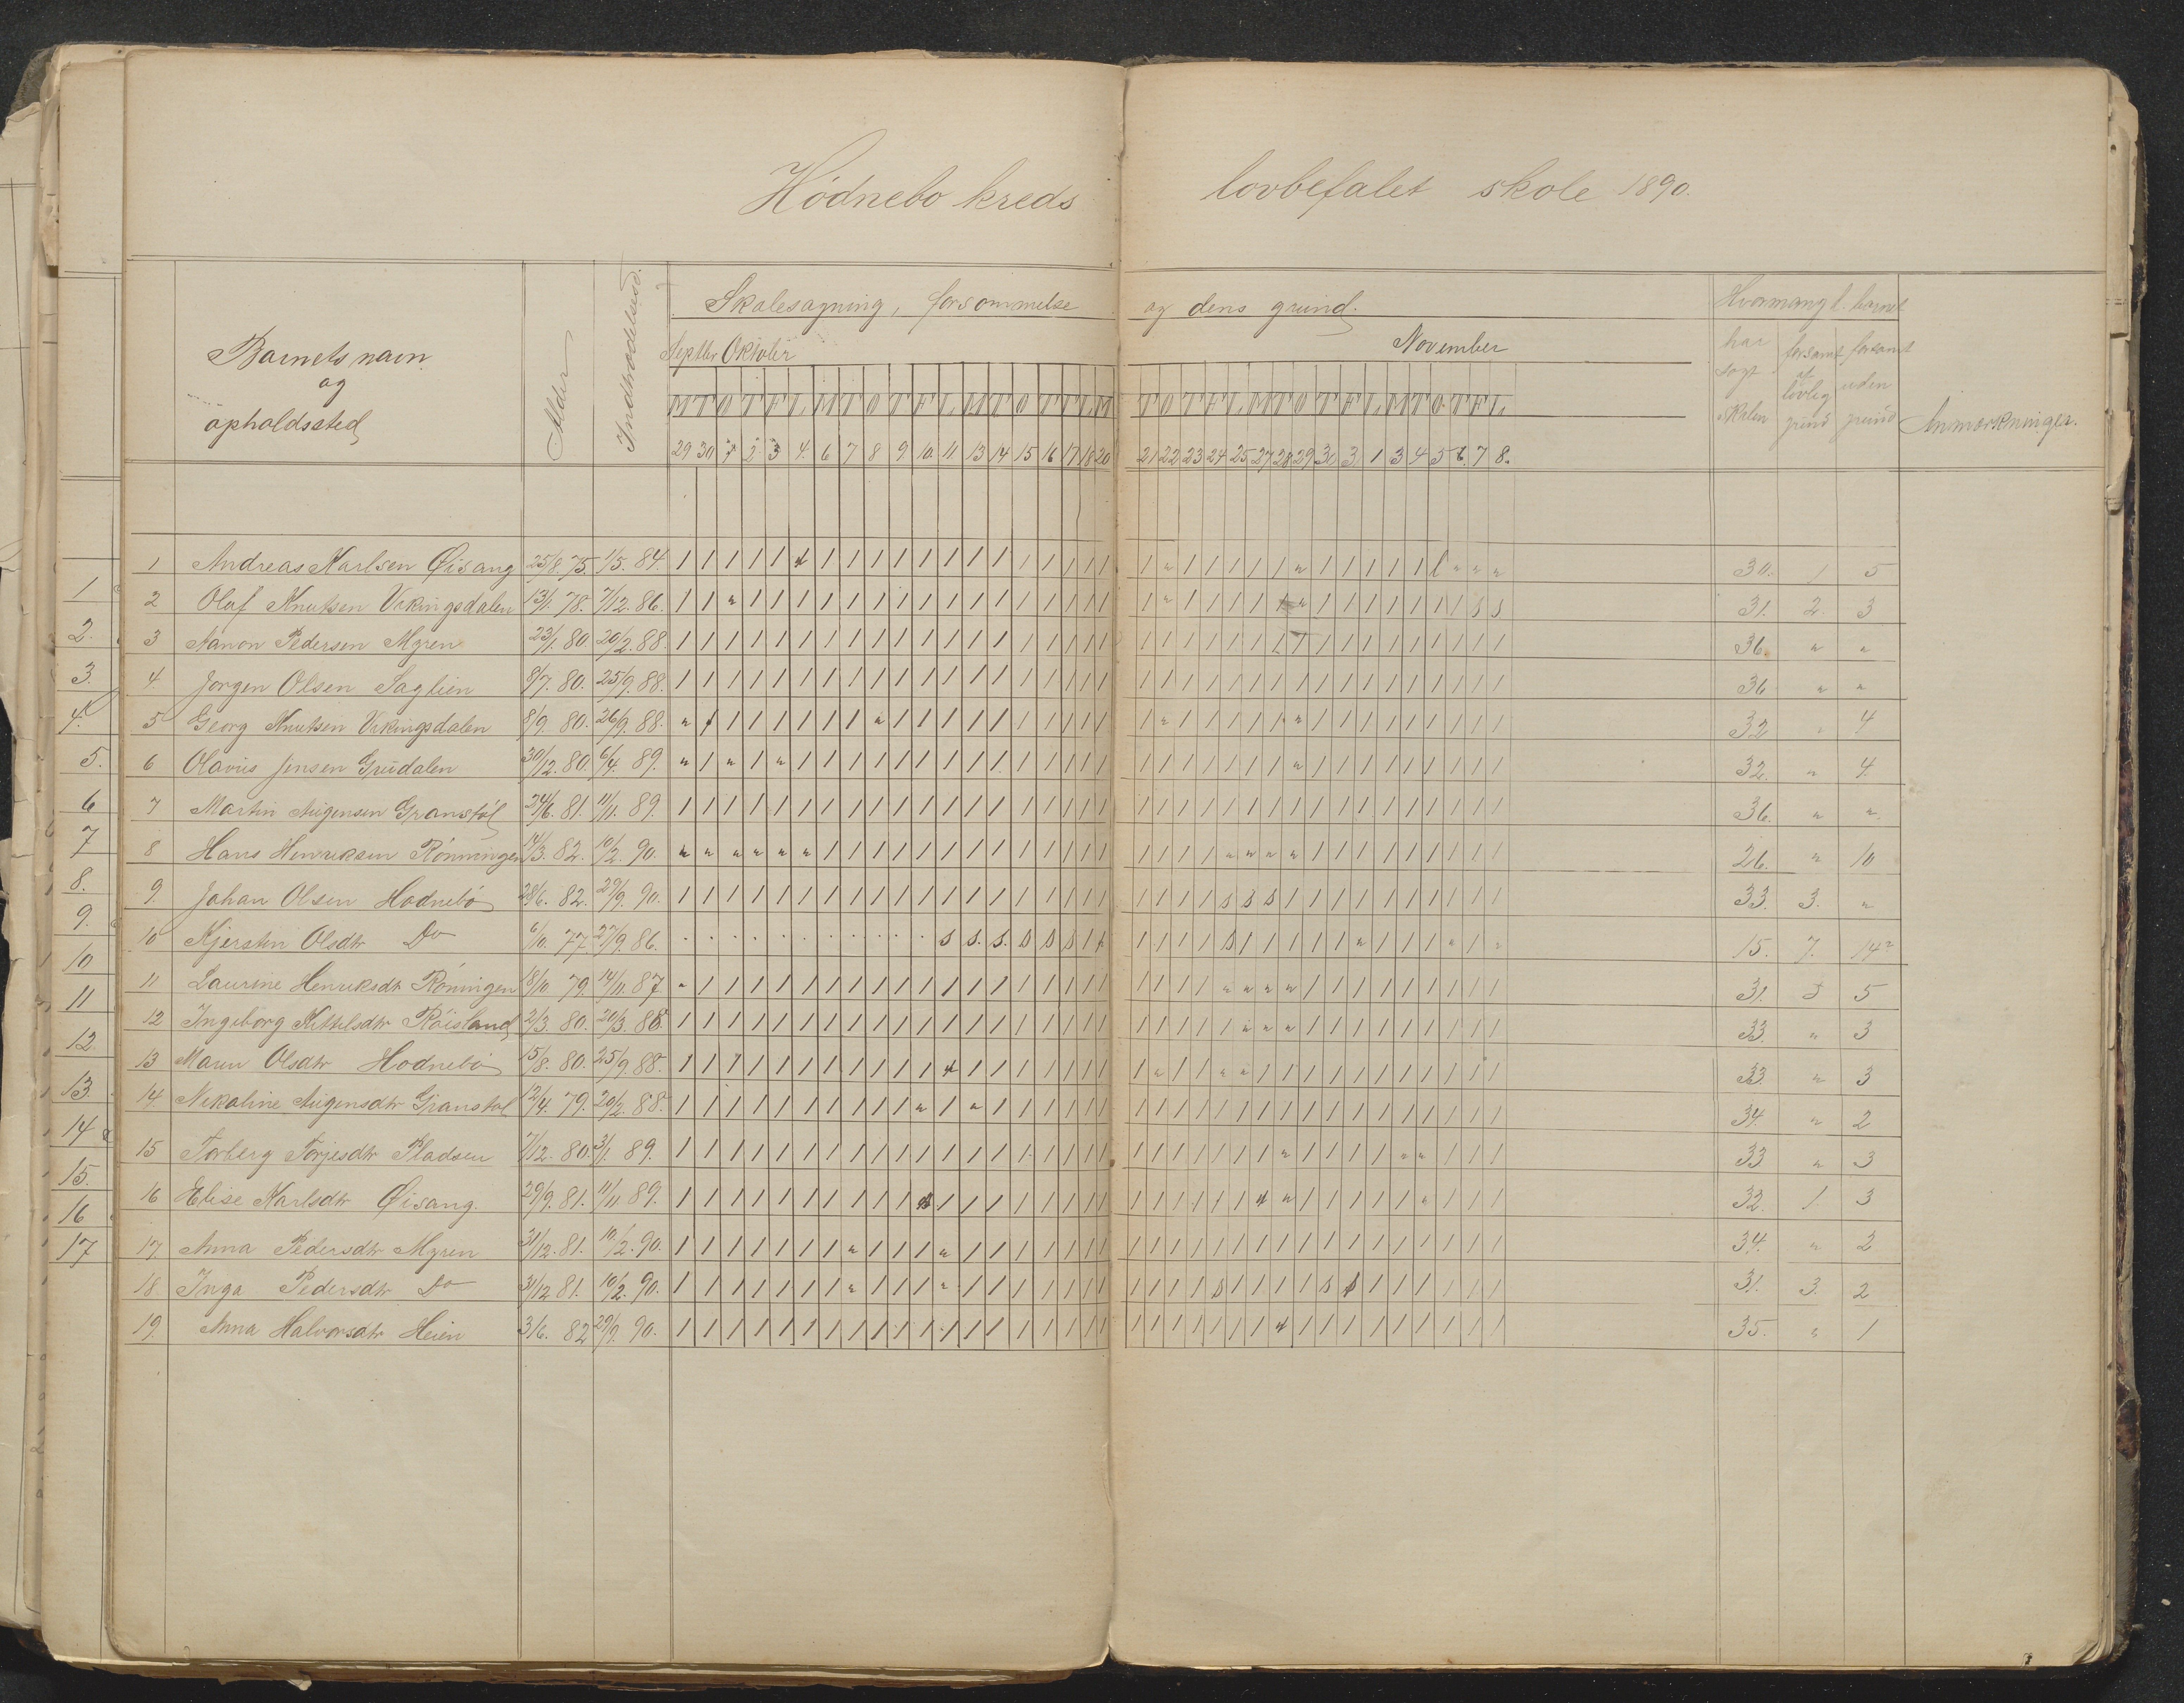 Hódnebo kreds lovbefalet skole 1890.
Barnets navn og opholdssted
Alder
Indtrædelsesd.
Skolesøgning, forsømmelse og dens grund.
Septbr. Oktober November
Hvormange d. barnet
har søgt skolen
forsømt af lovlig grund
forsømt uden grund
Anmærkninger.
M T O T F L M T O T F L M T O T F L M T O T F L M T O T F L M T O T F L
29 30 1 2 3 4 6 7 8 9 10 11 13 14 15 16 17 18 20 21 22 23 24 25 27 28 29 30 3. 1 3 4 5 6. 7 8.
1 Andreas Karlsen Øisang 25/8. 75. 1/5. 84. 30. 1 5
2 Olaf Knutsen Vikingsdalen 13/1. 78. 7/12. 86. 31. 2. 3
3 Aanon Pedersen Myren 23/1. 80. 20/2. 88. 36. " "
4 Jorgen Olsen Saglien 8/7. 80. 25/9. 88. 36 " "
5 Georg Knutsen Vikingsdalen 8/9. 80. 26/9. 88. 32 " 4
6 Olavus Jensen Grudalen 30/12. 80. 6/4. 89. 32. " 4.
7 Martin Augensen Granstøl 24/6. 81. 11/11. 89. 36. " "
8 Hans Henriksen Rónningen 14/3. 82. 10/2. 90. 26. " 10
9 Johan Olsen Hodnebó 28/6. 82. 29/9. 90. 33. 3. "
10 Kjersten Olsdtr Do 6/10. 77. 27/9. 86. 15. 7. 14
11 Laurine Henriksdtr Róningen 18/10 79. 14/11. 87 31. 5
12 Ingeborg Kittilsdtr Róisland 2/3. 80. 20/3. 88. 33. " 3
13 Maren Olsdtr Hodnebó 15/8. 80. 25/9. 88. 33. " 3
14 Nikoline Augensdtr Granstøl 12/4. 79. 20/2. 88. 34. " 2
15 Torberg Torjesdtr Pladsen 7/12. 80. 3/1. 89. 33 " 3
16 Elise Karlsdtr Øisang. 29/9. 81. 11/11 89. 32. 1. 3
17 Anna Pedersdtr Myren 31/12. 81. 10/2. 90. 34. " 2
18 Inga Pedersdtr Do 31/12 81. 10/2. 90. 31. 3. 2
19. Anna Halvorsdtr Heien 3/6. 82 29/9. 90. 35. " 1
1
2.
3.
4.
5.
6
7
8.
9.
10
11
12.
13.
14
15.
16
17